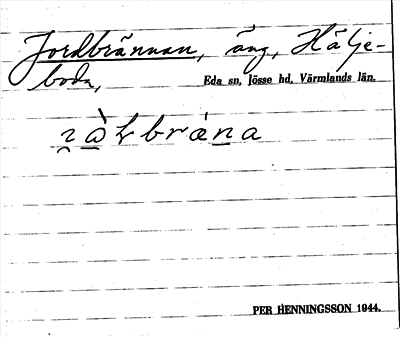 Jordbrännan, äng, Hälje-
boda, Eda sn, Jösse hd, Värmlands län.
PER HENNINGSSON 1944.